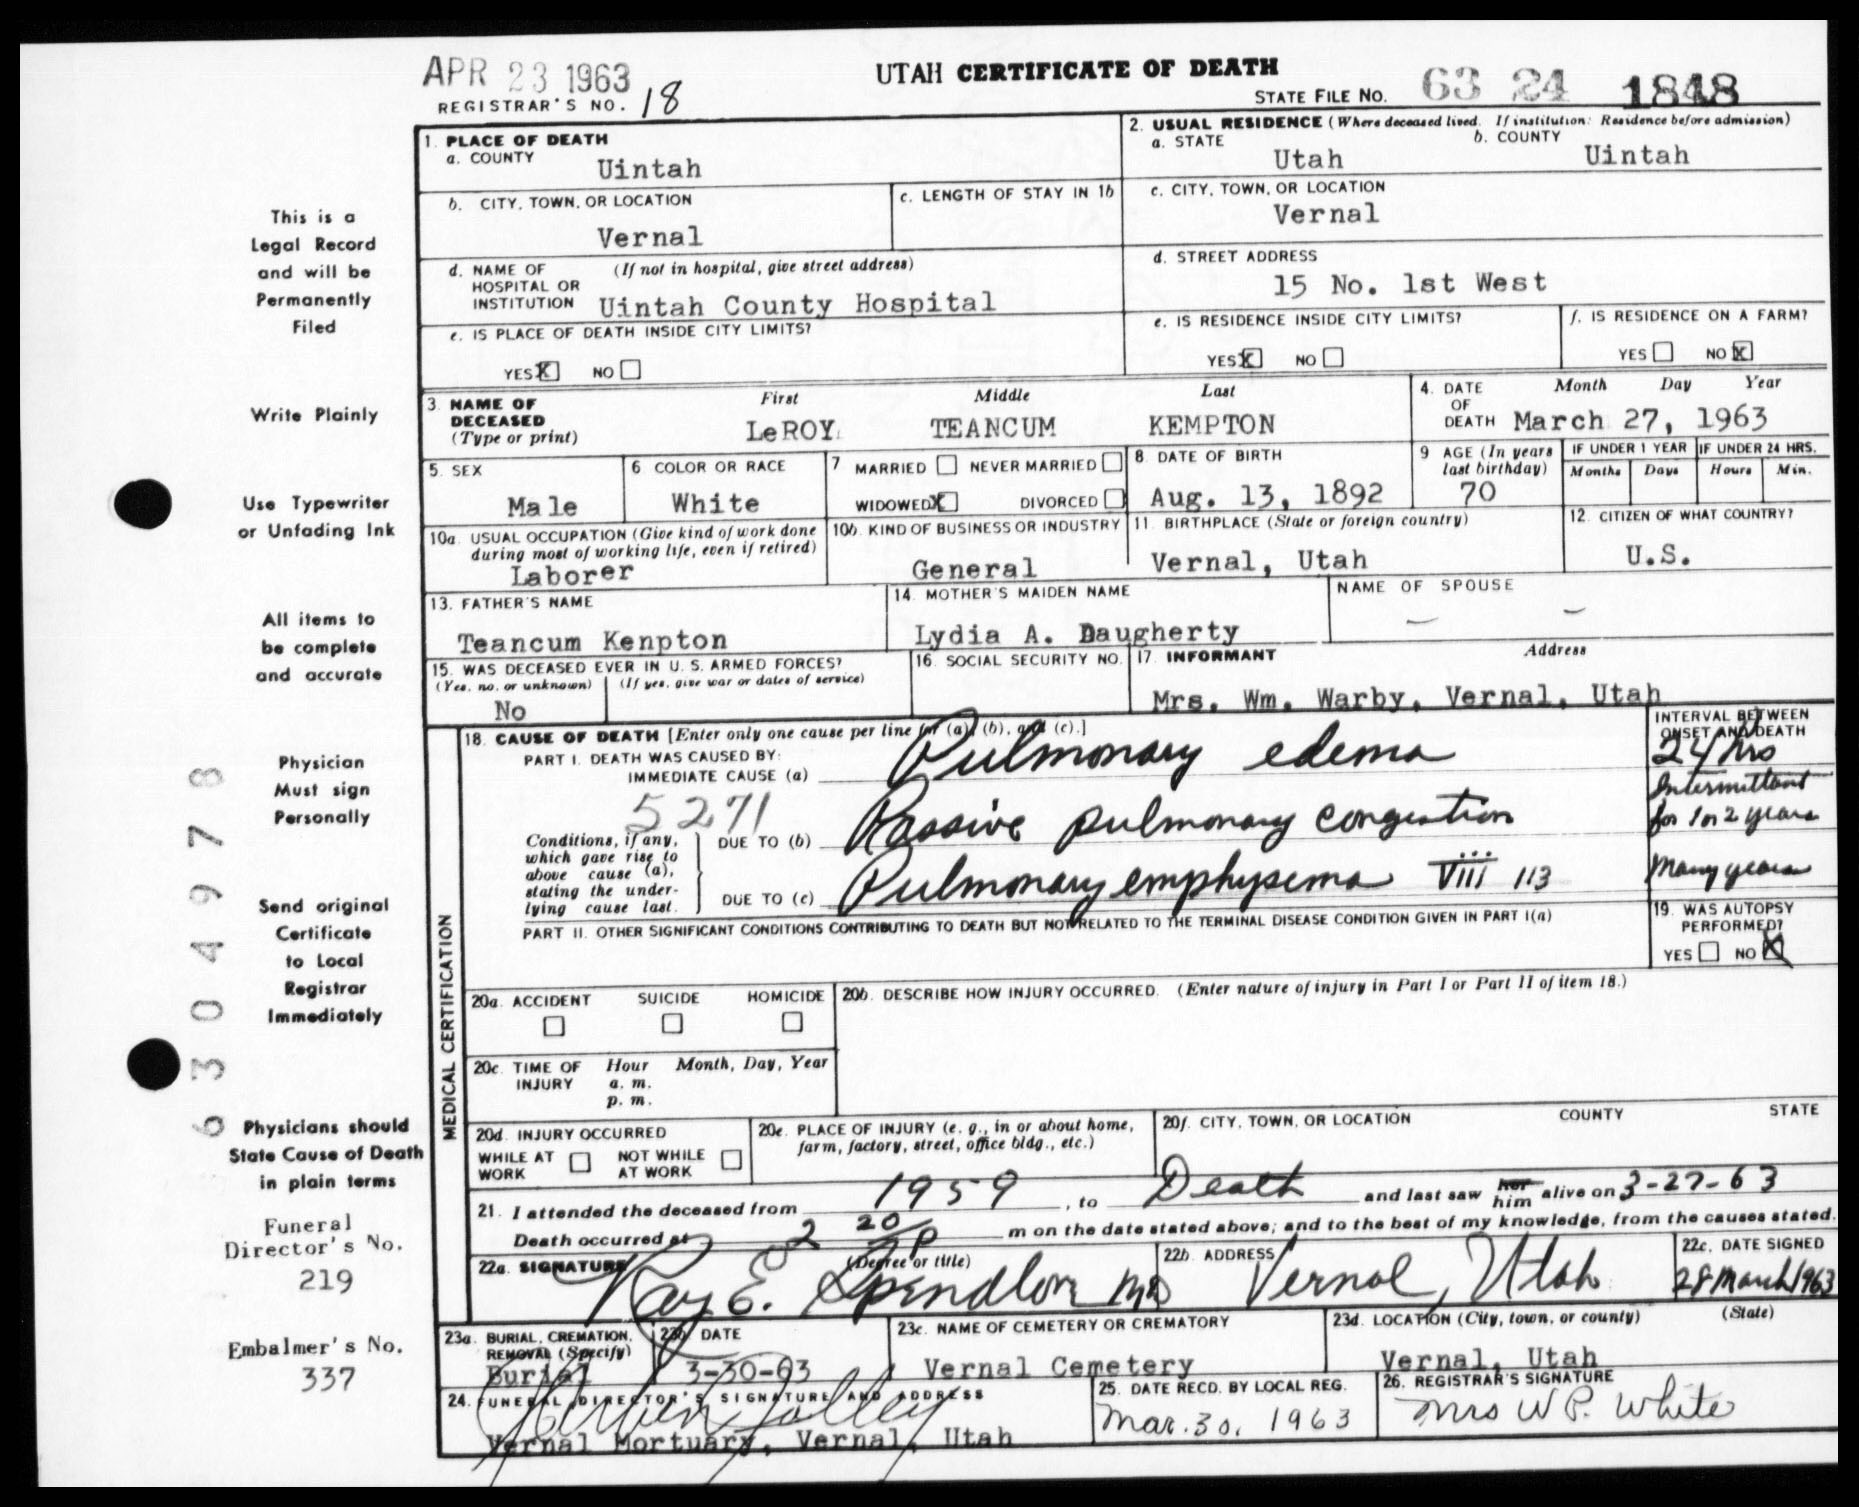 APR 23 1963
UTAH CERTIFICATE OF DEATH
REGISTRAR'S NO. 18
STATE FILE NO. 63 24 1848
This is a
Legal Record
and will be
Permanently
Filed
Write Plainly
Use Typewriter
or Unfading Ink
All items to
be complete
and accurate
Physician
Must sign
Personally
Send original
Certificate
to Local
Registrar
Immediately
Physicians should
State Cause of Death
in plain terms
Funeral
Director's No.
219
Embalmer's No.
337
6304978
1. PLACE OF DEATH
a. COUNTY
Uintah
2. USUAL RESIDENCE (Where deceased lived. If institution: Residence before admission)
a. STATE
Utah
b. COUNTY
Uintah
b. CITY, TOWN, OR LOCATION
Vernal
c. LENGTH OF STAY IN 1b
c. CITY, TOWN, OR LOCATION
Vernal
d. NAME OF HOSPITAL OR INSTITUTION (If not in hospital, give street address)
Uintah County Hospital
d. STREET ADDRESS
15 No. 1st West
e. IS PLACE OF DEATH INSIDE CITY LIMITS?
YES X NO
e. IS RESIDENCE INSIDE CITY LIMITS?
YES X NO
f. IS RESIDENCE ON A FARM?
YES NO X
3. NAME OF DECEASED (Type or print)
First Middle Last
LeROY TEANCUM KEMPTON
4. DATE OF DEATH Month Day Year
March 27, 1963
5. SEX
Male
6 COLOR OR RACE
White
7 MARRIED NEVER MARRIED
WIDOWED X DIVORCED
8. DATE OF BIRTH
Aug. 13, 1892
9 AGE (In years last birthday)
70
IF UNDER 1 YEAR
Months Days
IF UNDER 24 HRS.
Hours Min.
10a. USUAL OCCUPATION (Give kind of work done during most of working life, even if retired)
Laborer
10b. KIND OF BUSINESS OR INDUSTRY
General
11. BIRTHPLACE (State or foreign country)
Vernal, Utah
12. CITIZEN OF WHAT COUNTRY?
U.S.
13. FATHER'S NAME
Teancum Kenpton
14. MOTHER'S MAIDEN NAME
Lydia A. Daugherty
NAME OF SPOUSE
— —
15. WAS DECEASED EVER IN U. S. ARMED FORCES?
(Yes, no, or unknown) (If yes, give war or dates of service)
No
16. SOCIAL SECURITY NO.
17. INFORMANT Address
Mrs. Wm. Warby, Vernal, Utah
MEDICAL CERTIFICATION
18. CAUSE OF DEATH [Enter only one cause per line for (a), (b), and (c).]
INTERVAL BETWEEN ONSET AND DEATH
PART I. DEATH WAS CAUSED BY:
IMMEDIATE CAUSE (a) Pulmonary edema
24 hrs
5271
Conditions, if any, which gave rise to above cause (a), stating the underlying cause last.
DUE TO (b) Passive pulmonary congestion
Intermittent for 1 or 2 years
DUE TO (c) Pulmonary emphysema Viii 113
Many years
PART II. OTHER SIGNIFICANT CONDITIONS CONTRIBUTING TO DEATH BUT NOT RELATED TO THE TERMINAL DISEASE CONDITION GIVEN IN PART I(a)
19. WAS AUTOPSY PERFORMED?
YES NO X
20a. ACCIDENT SUICIDE HOMICIDE
20b. DESCRIBE HOW INJURY OCCURRED. (Enter nature of injury in Part I or Part II of item 18.)
20c. TIME OF INJURY Hour Month, Day, Year
a. m.
p. m.
20d. INJURY OCCURRED
WHILE AT WORK NOT WHILE AT WORK
20e. PLACE OF INJURY (e. g., in or about home, farm, factory, street, office bldg., etc.)
20f. CITY, TOWN, OR LOCATION COUNTY STATE
21. I attended the deceased from 1959, to Death and last saw her him alive on 3-27-63
Death occurred at 2 20 P m on the date stated above; and to the best of my knowledge, from the causes stated.
22a. SIGNATURE (Degree or title)
Ray E. Spendlove MD
22b. ADDRESS
Vernal, Utah
22c. DATE SIGNED
28 March 1963
23a. BURIAL, CREMATION, REMOVAL (Specify)
Burial
23b. DATE
3-30-63
23c. NAME OF CEMETERY OR CREMATORY
Vernal Cemetery
23d. LOCATION (City, town, or county) (State)
Vernal, Utah
24. FUNERAL DIRECTOR'S SIGNATURE AND ADDRESS
Vernal Mortuary, Vernal, Utah
25. DATE RECD. BY LOCAL REG.
Mar. 30, 1963
26. REGISTRAR'S SIGNATURE
Mrs W P. White